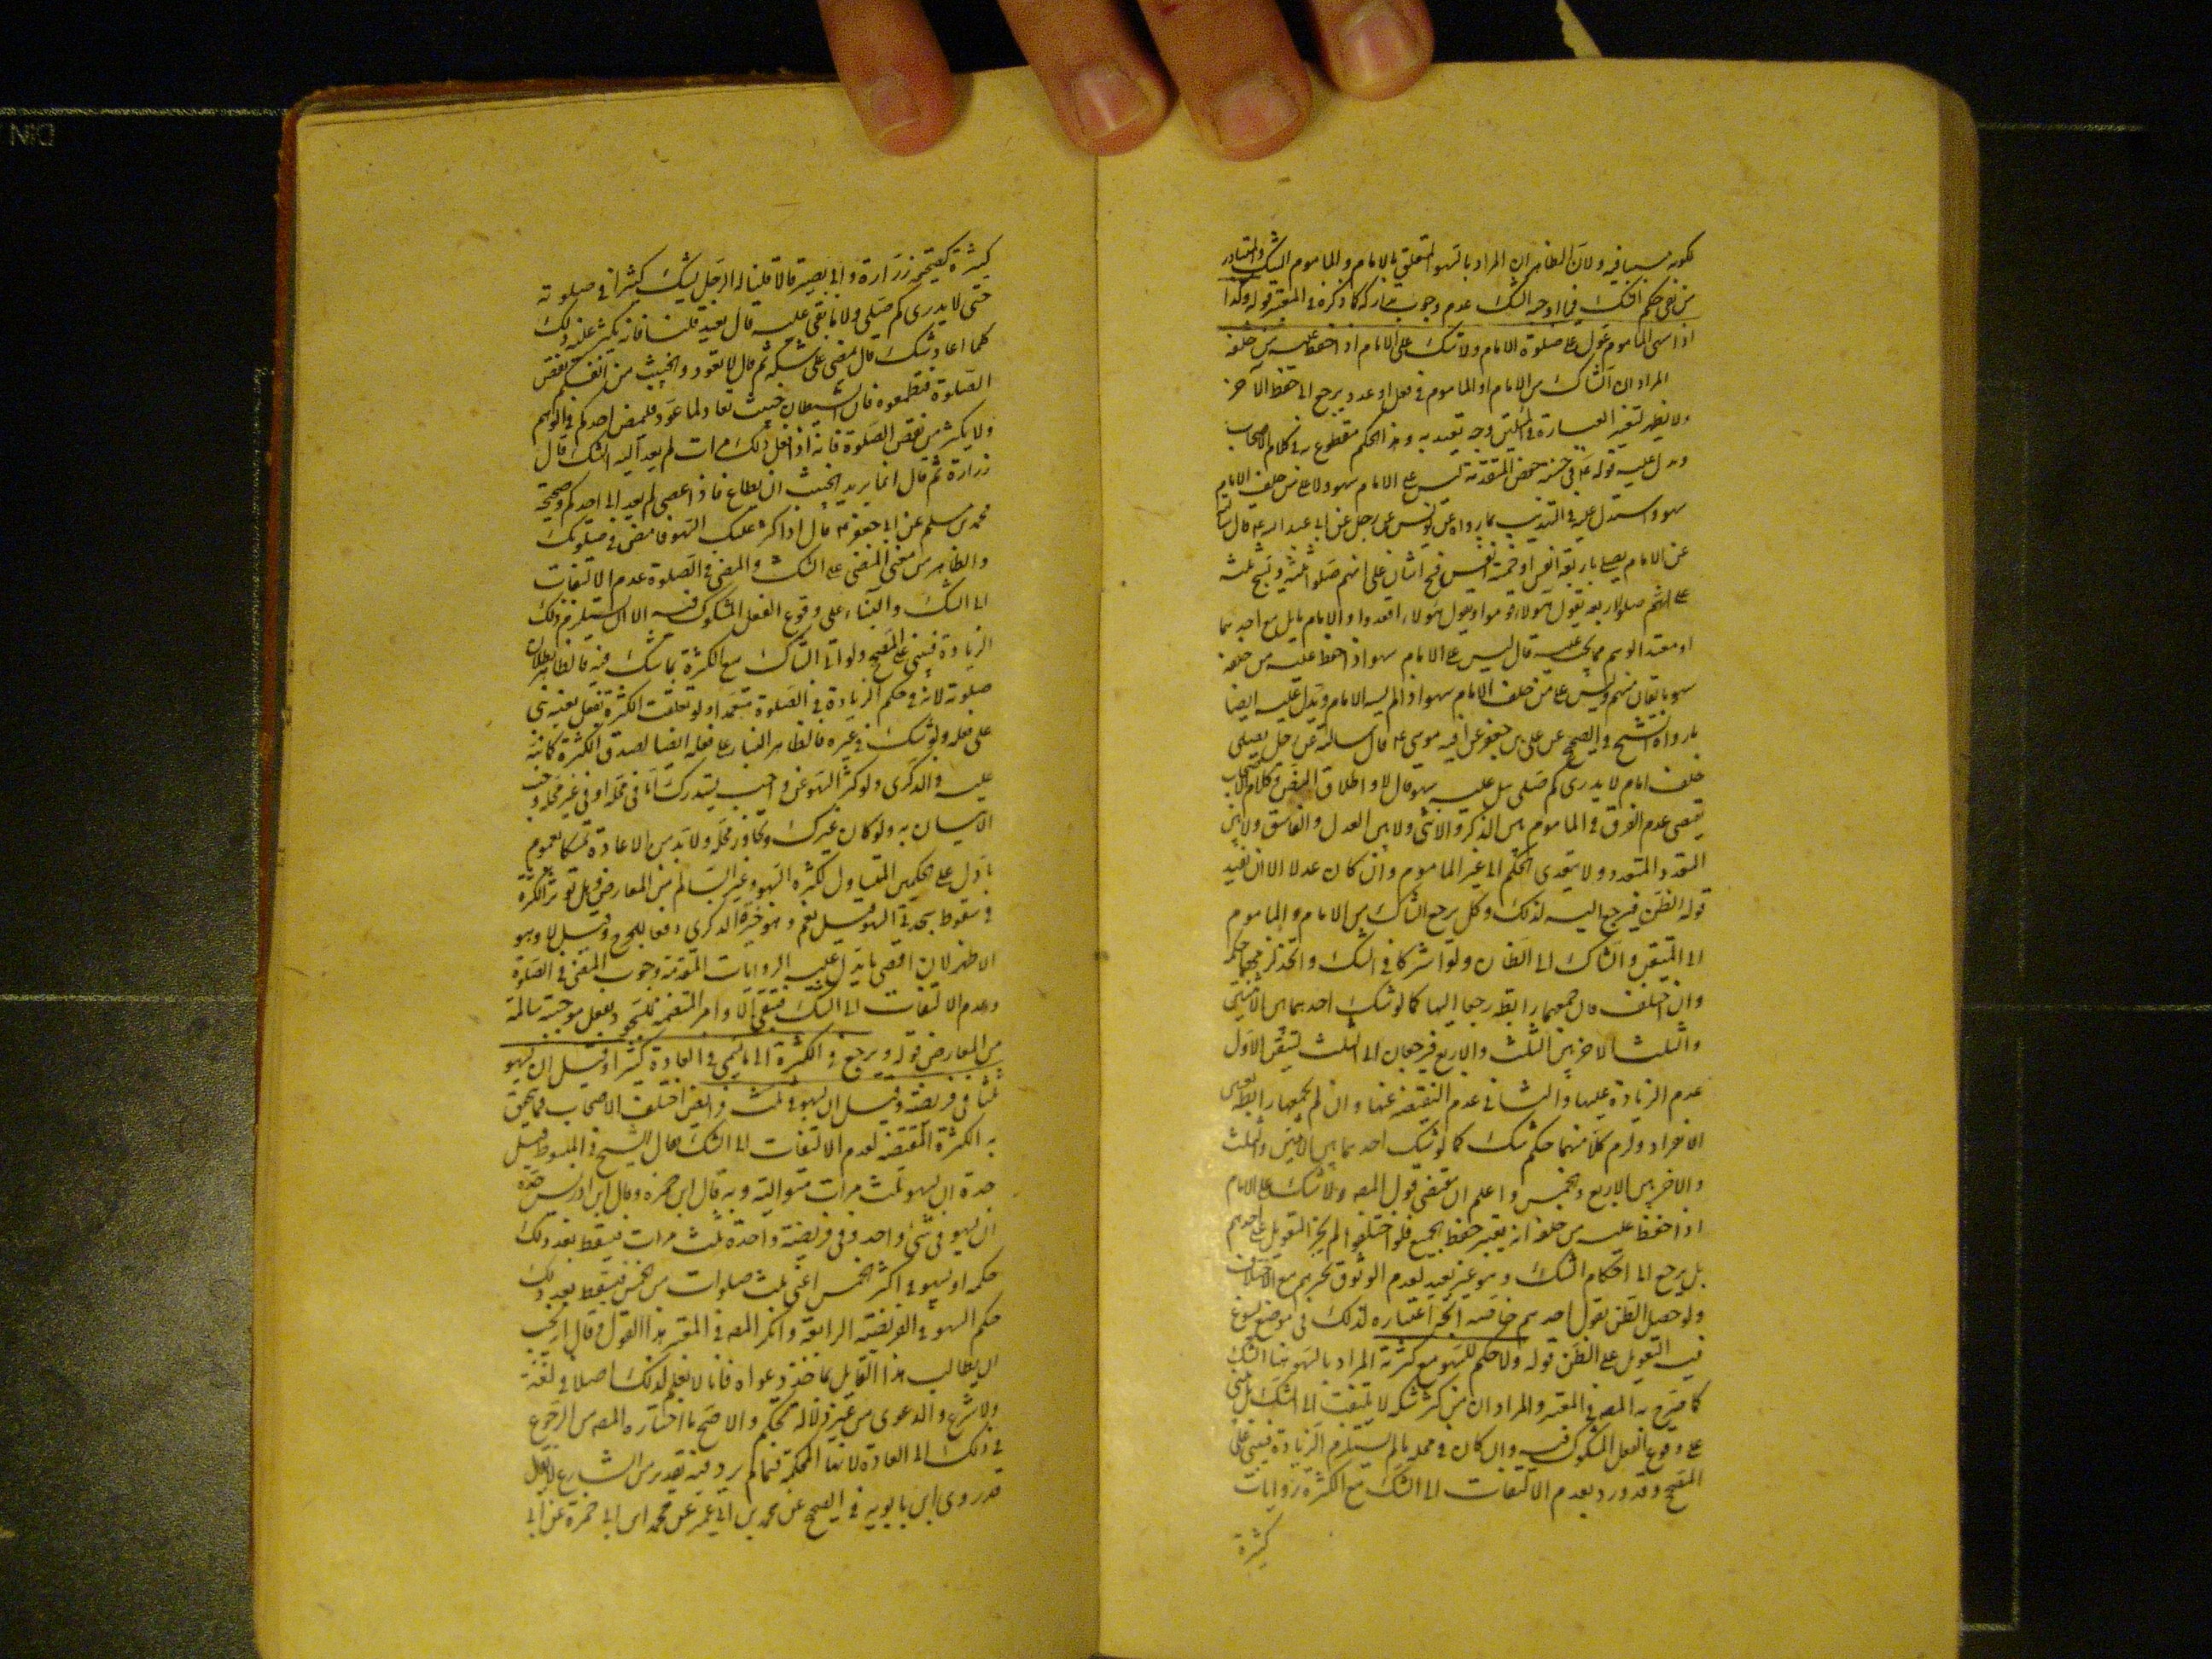 لكونه مسببا فيه ولان الظاهر ان المراد بالسهو المتعلق بالامام والماموم الشك والمتبادر
من نفي حكم الشك فيما اوجبه الشك عدم وجوب تداركه كما ذكره في المعتبر قوله وكذا
اذا سهى الماموم عول على صلوة الامام ولا شك على الامام اذا حفظ عليه من خلفه
المراد ان الشاك من الامام او الماموم في فعل او عدد يرجع الى حفظ الآخر
ولا يظهر لتغير العبارة في المسئلتين وجه يعتد به وهذا الحكم مقطوع به في كلام الاصحاب
ويدل عليه قوله ع في حسنة حفص المتقدمة ليس على الامام سهو ولا على من خلف الامام
سهو واستدل عليه في التهذيب بما رواه عن يونس عن رجل عن ابي عبد الله ع قال سالته
عن الامام يصلي باربعة انفس او خمسة انفس فيسبح اثنان على انهم صلوا ثلثة ويسبح ثلثة
على انهم صلوا اربعه يقول هولاء قوموا ويقول هولاء اقعدوا والامام مايل مع احدهما
او معتدل الوهم فما يجب عليه قال ليس على الامام سهو اذا حفظ عليه من خلفه
سهو باتفاق منهم وليس على من خلف الامام سهو اذا لم يسه الامام ويدل عليه ايضا
ما رواه الشيخ في الصحيح عن علي بن جعفر عن اخيه موسى ع قال سالته عن رجل يصلي
خلف امام لا يدرى كم صلى هل عليه سهو قال لا واطلاق النص وكلام الاصحاب
يقتضى عدم الفرق في الماموم بين الذكر والانثى ولا بين العدل والفاسق ولا بين
المتحد والمتعدد ولا يتعدى الحكم الى غير الماموم وان كان عدلا الا ان يفيد
قوله الظن فيرجع اليه لذلك وكل يرجع الشاك من الامام والماموم
الى المتيقن والشاك الى الظان ولو اشتركا في الشك واتحد لزمهما حكمه
وان اختلف فان جمعهما رابطة رجعا اليها كما لو شك احدهما بين الاثنتين
والثلث والاخر بين الثلث والاربع فيرجعان الى الثلث لتيقن الاول
عدم الزيادة عليها والثاني عدم النقيصة عنها وان لم يجمعهما رابطة تعين
الانفراد ولزم كلا منهما حكم شكه كما لو شك احدهما بين الاثنين والثلث
والاخر بين الاربع والخمس واعلم ان مقتضى قول المصه ولا شك على الامام
اذا حفظ عليه من خلفه انه يعتبر حفظ الجميع فلو اختلفوا لم يجز التعويل على احدهم
بل يرجع الى احكام الشك وهو غير بعيد لعدم الوثوق بخبرهم مع الاختلاف
ولو حصل الظن بقول احدهم خاصة اتجه اعتباره لذلك في موضع يسوغ
فيه التعويل على الظن قوله ولا حكم للسهو مع كثرته المراد بالسهو هنا الشك
كما صرح به المصه في المعتبر والمراد ان من كثر شكه لا يلتفت الى الشك بل يبنى
على وقوع الفعل المشكوك فيه وان كان في محله ما لم يستلزم الزيادة فيبنى على
المصحح وقد ورد بعدم الالتفات الى الشك مع الكثرة روايات
كثيرة
كثيرة كصحيحة زرارة وابي بصير قالا قلنا له الرجل يشك كثيرا في صلوته
حتى لا يدرى كم صلى ولا ما بقى عليه قال يعيد قلنا فانه يكثر عليه ذلك
كلما اعاد شك قال يمضى على شكه ثم قال لا تعودوا الخبيث من انفسكم نقض
الصلوة فتطمعوه فان الشيطان خبيث يعتاد لما عود فليمض احدكم في الوهم
ولا يكثرن نقض الصلوة فانه اذا فعل ذلك مرات لم يعد اليه الشك قال
زرارة ثم قال انما يريد الخبيث ان يطاع فاذا عصى لم يعد الى احدكم وصحيحة
محمد بن مسلم عن ابي جعفر ع قال اذا كثر عليك السهو فامض في صلوتك
والظاهر من معنى المضى على الشك والمضى في الصلوة عدم الالتفات
الى الشك والبناء على وقوع الفعل المشكوك فيه الا ان يستلزم ذلك
الزيادة فيبنى على المصحح ولو اتى الشاك مع الكثرة بما شك فيه فالظاهر بطلان
صلوته لانه في حكم الزيادة في الصلوة متعمدا ولو تعلقت الكثرة بفعل بعينه بنى
على فعله ولو شك في غيره فالظاهر البناء على فعله ايضا لصدق الكثرة كما نبه
عليه في الذكرى ولو كثر السهو عن واجب يستدرك اما في محله او في غير محله وجب
الاتيان به ولو كان عن ركن وتجاوز محله ولا بد من الاعادة تمسكا بعموم
ما دل على الحكمين المتناول لكثير السهو وغيره السالم من المعارض وهل تؤثر الكثرة
في سقوط سجدتي السهو قيل نعم وهو خيرة الذكرى دفعا للحرج وقيل لا وهو
الاظهر لان اقصى ما يدل عليه الروايات المتقدمة وجوب المضى في الصلوة
وعدم الالتفات الى الشك فتبقى الاوامر المتضمنه للسجود بفعل موجبه سالمة
من المعارض قوله ويرجع في الكثرة الى ما يسمى في العادة كثيرا وقيل ان يسهو
ثلثا في فريضة وقيل ان يسهو مرة في ثلث فرايض اختلف الاصحاب فيما يتحقق
به الكثرة المقتضيه لعدم الالتفات الى الشك فقال الشيخ في المبسوط قيل
حده ان يسهو ثلث مرات متوالية وبه قال ابن حمزه وقال ابن ادريس حده
ان يسهو في شئ واحد وفي فريضة واحدة ثلث مرات فيسقط بعد ذلك
حكمه او يسهو في اكثر الخمس اعني ثلث صلوات من الخمس فيسقط بعد ذلك
حكم السهو في الفريضة الرابعة وانكر المصه في المعتبر هذا القول وقال انه يجب
ان يطالب هذا القايل بماخذ دعواه فانا لا نعلم لذلك اصلا في لغة
ولا شرع والدعوى من غير دلالة تحكم والاصح ما اختاره المصه من الرجوع
في ذلك الى العادة لانها المحكمة فيما لم يرد فيه تقدير من الشارع
قد روى ابن بابويه في الصحيح عن محمد بن ابي عمير عن محمد ابن ابي حمزة عن ابي